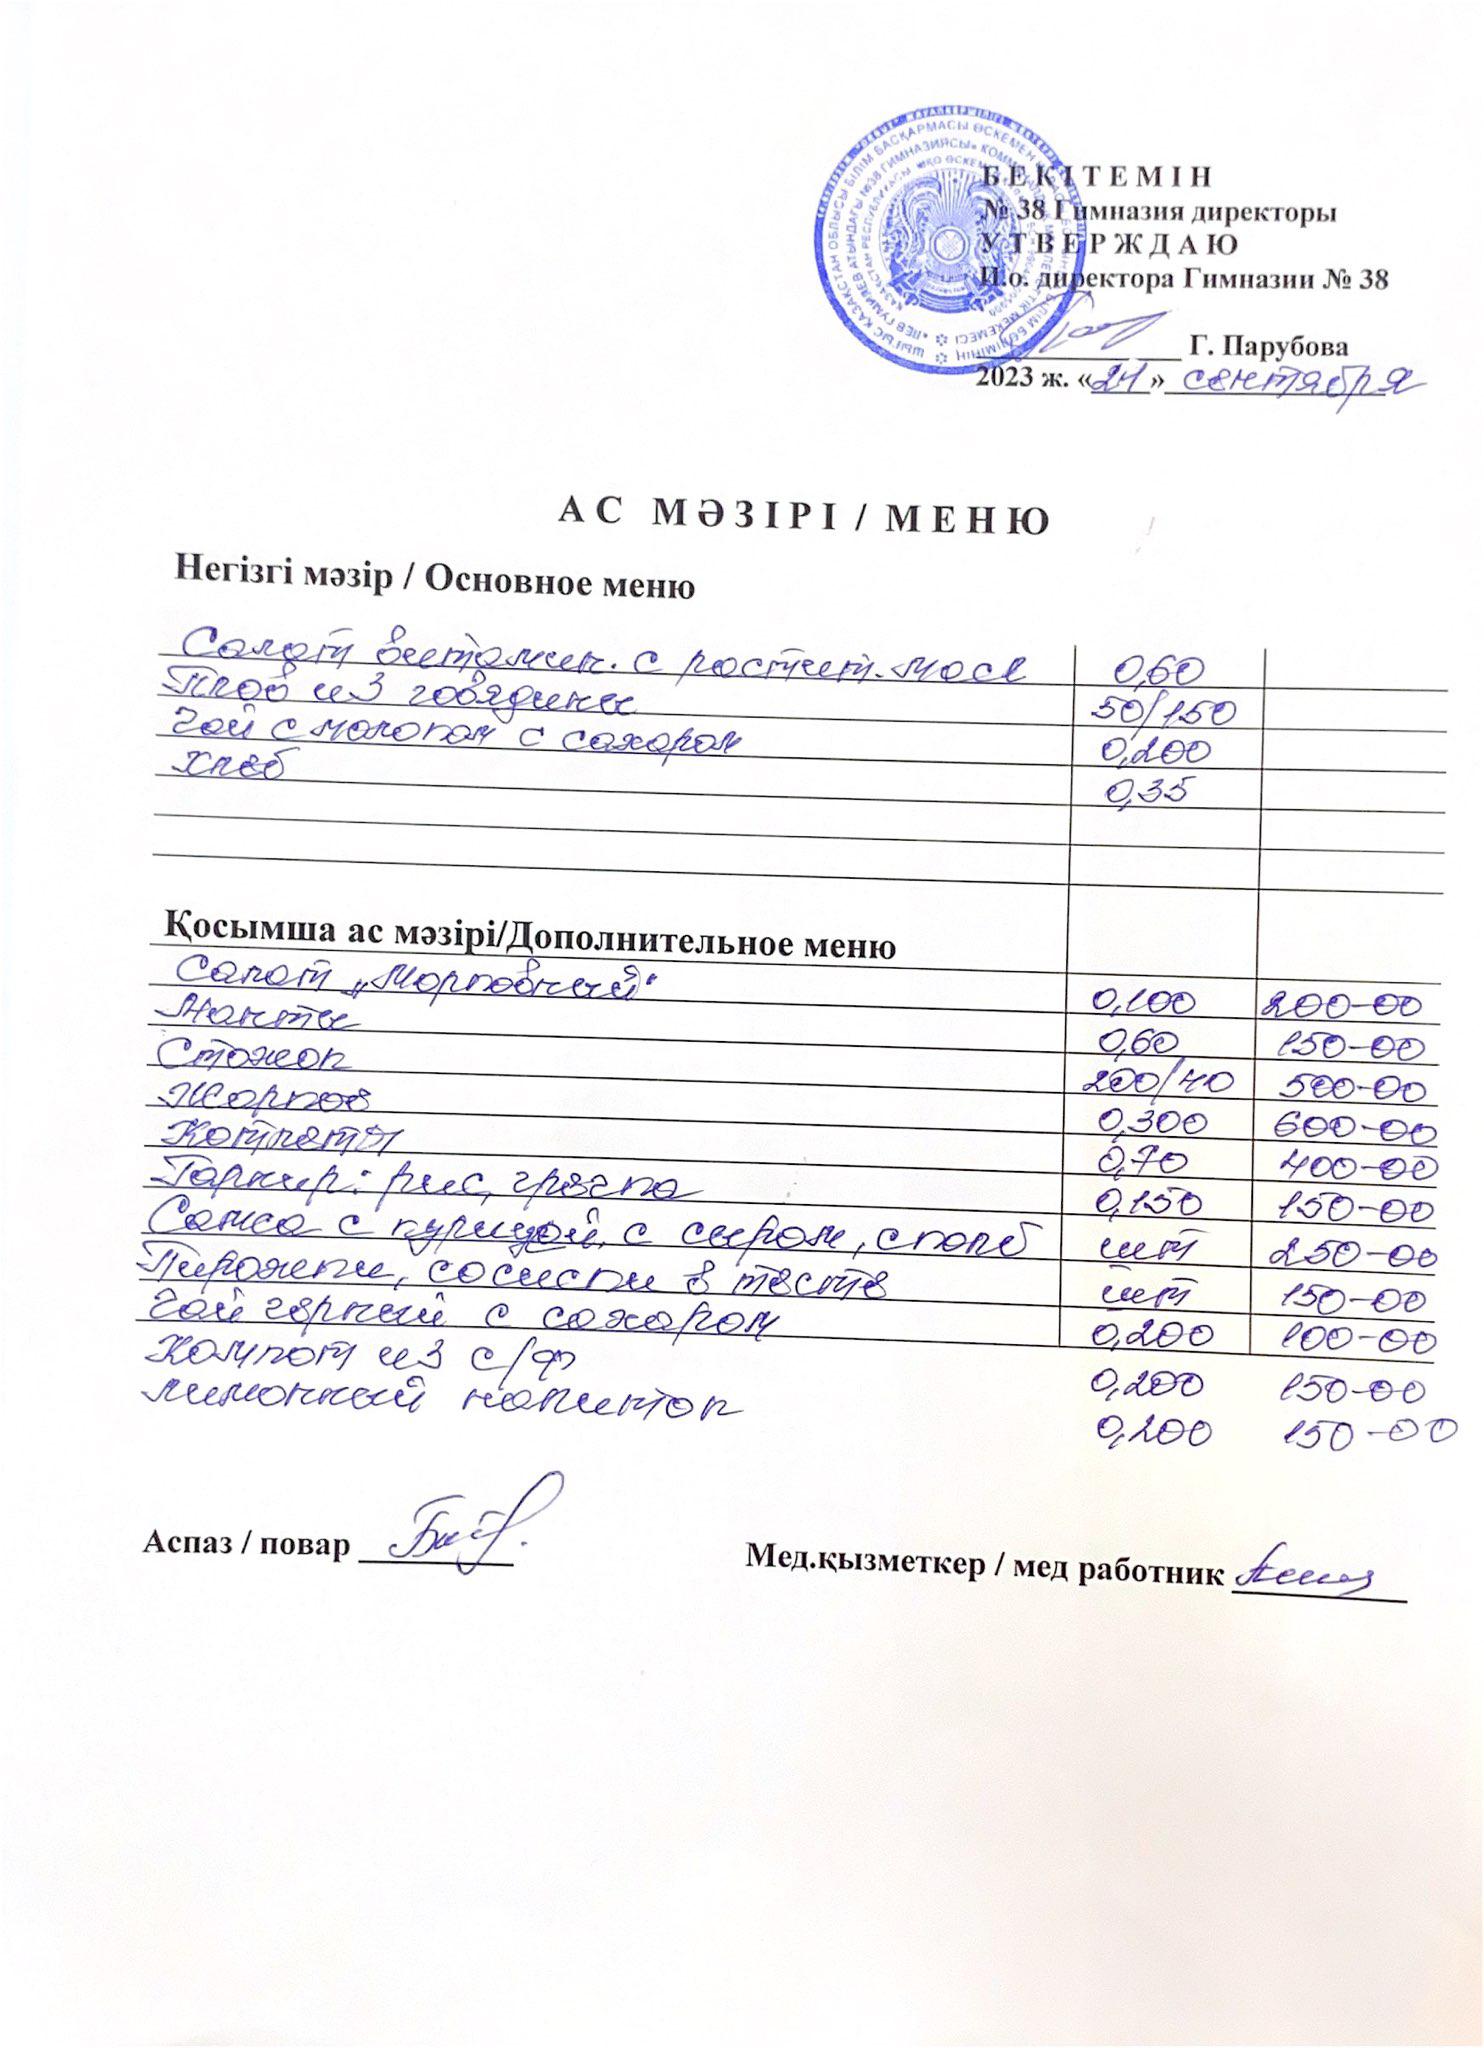 БЕКІТЕМІН
№ 38 Гимназия директоры
УТВЕРЖДАЮ
И.о. директора Гимназии № 38
Г. Парубова
2023 ж. «21» сентября
АС МӘЗІРІ / МЕНЮ
Негізгі мәзір / Основное меню
Салат витамин. с растит. масл 0,60
Плов из говядины 50/150
Чай с молоком с сахаром 0,200
Хлеб 0,35
Қосымша ас мәзірі/Дополнительное меню
Салат „Морковный" 0,100 200-00
Манты 0,60 150-00
200/40 500-00
Жаркое 0,300 600-00
Котлеты 0,70 400-00
Гарнир: рис, гречка 0,150 150-00
Самса с курицей, с сыром, слоен шт 250-00
Пирожки, сосиски в тесте шт 150-00
Чай черный с сахаром 0,200 100-00
Компот из с/ф 0,200 150-00
Лимонный напиток 0,200 150-00
Аспаз / повар
Мед.қызметкер / мед работник